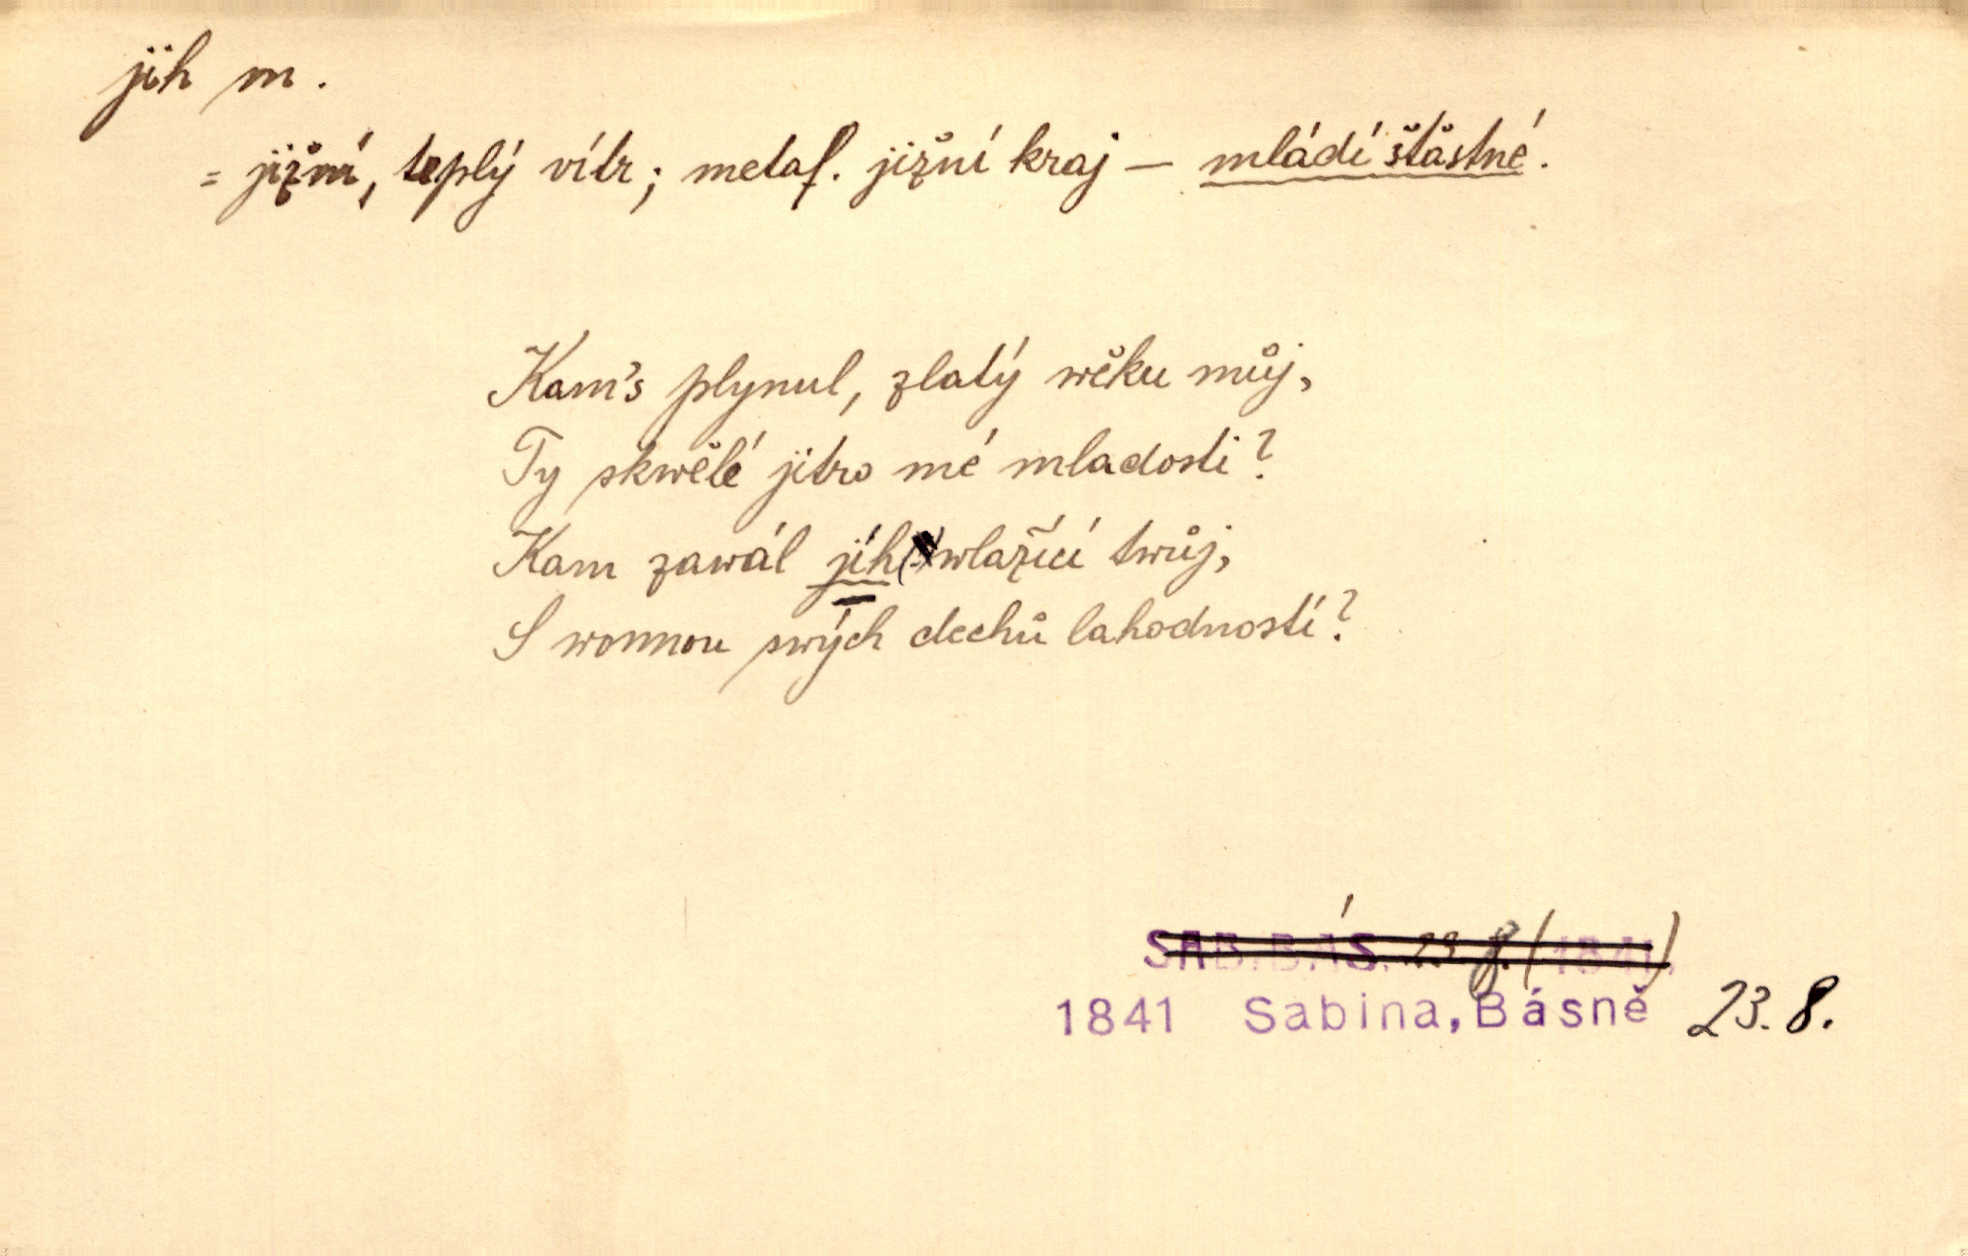 jih m.
= jižní, teplý vítr; metaf. jižní kraj – mládí šťastné.
Kam's plynul, zlatý wěku můj,
Ty skwělé jitro mé mladosti?
Kam zawál jíh wlažící twůj,
S wonnou swých dechů lahodností?
SAB. BÁS. 23 8. (1841).
1841 Sabina, Básně 23. 8.